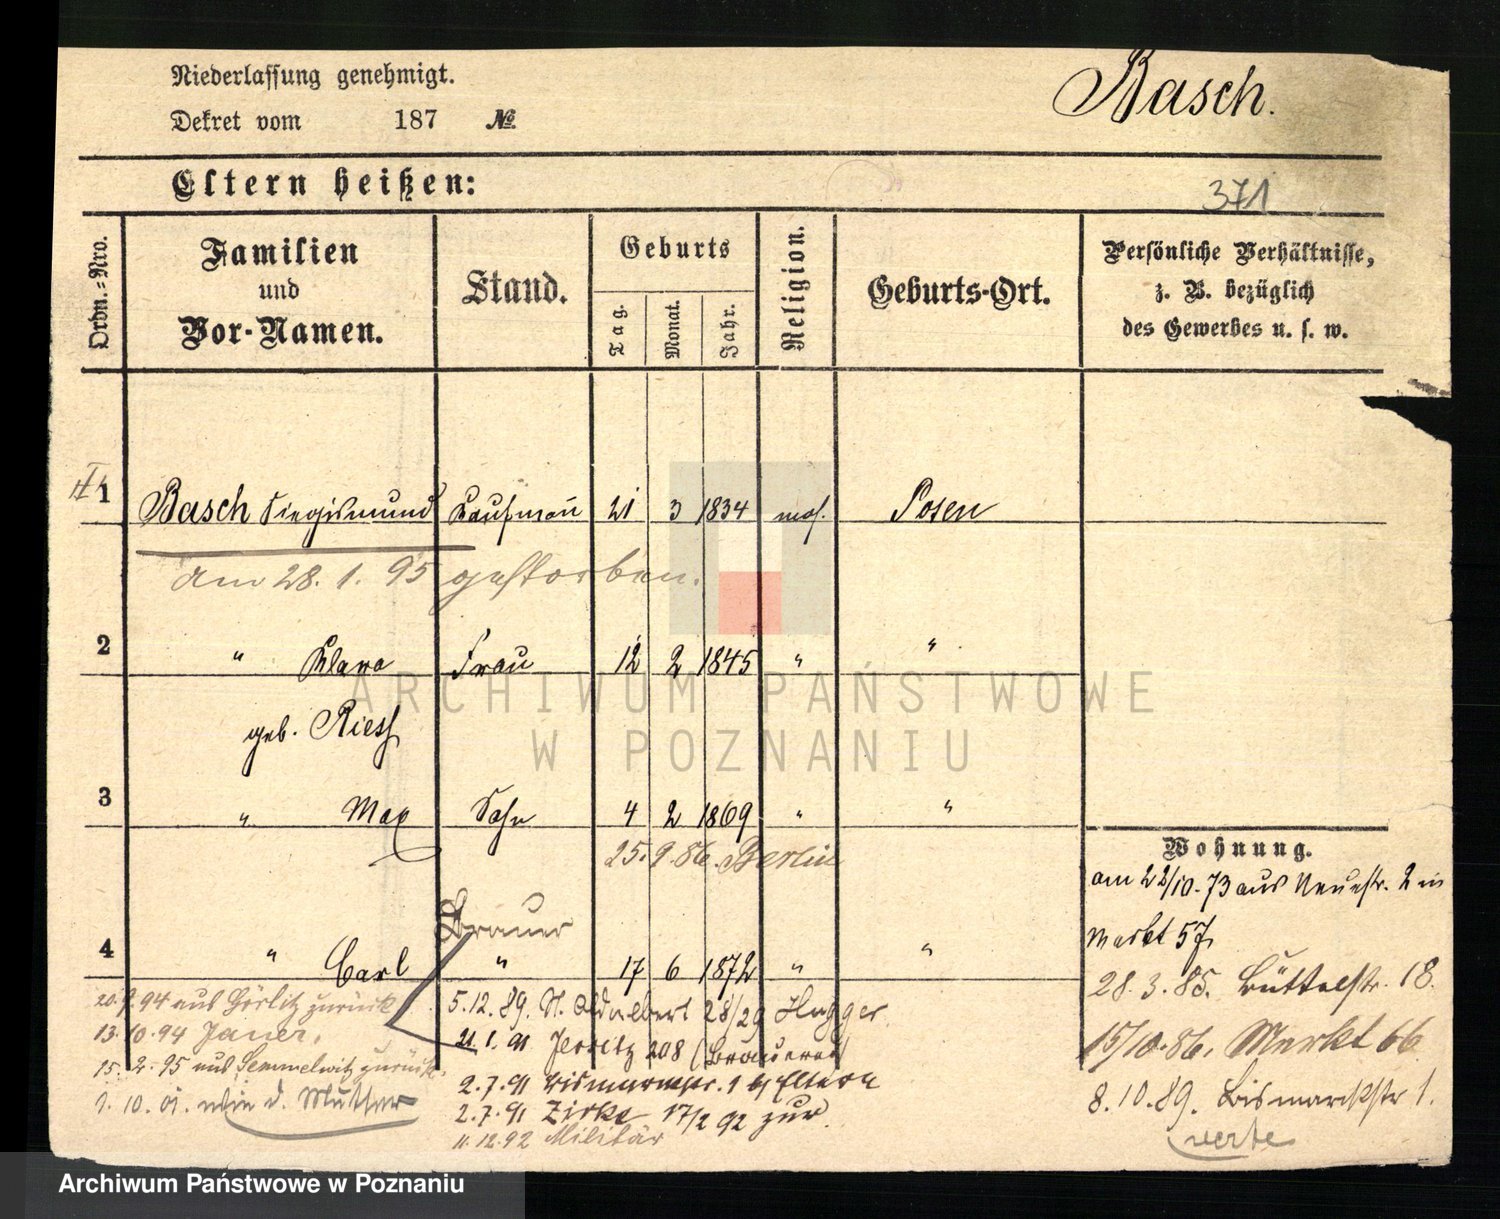 Niederlassung genehmigt.
Basch.
Dekret vom 187 №
Eltern heißen:
371
Ordn.-Nro.
Familien und Vor-Namen.
Stand.
Geburts
Tag.
Monat.
Jahr.
Religion.
Geburts-Ort.
Persönliche Verhältnisse,
z. B. bezüglich
des Gewerbes u. s. w.
1 Basch Siegismund Kaufmann 21 3 1834 mos. Posen
am 28. 1. 95 gestorben.
2 " Klara Frau 12 2 1845 " "
geb. Riess
3 " Max Sohn 4 2 1869 " "
25. 9. 86. Berlin
Brauer
4 " Carl " 17 6 1872 " "
20. 94 aus Görlitz zurück
13. 10. 94 Jauer.
15. 2. 95 aus Semmelwitz zurück.
1. 10. 01. wie d. Mutter
5. 12. 89. St. Adalbert 28/29 Hugger.
21. 1. 91 Jersitz 208 (Brauerei)
2. 7. 91 Bismarckstr. 1 b/ Eltern
2. 7. 91 Zirke 17/2 92 zur.
11. 12. 92 Militär
Wohnung.
am 22/10. 73 aus Neuestr. 2 in
Markt 57.
28. 3. 85. Büttelstr. 18.
15/10. 86. Markt 66
8. 10. 89. Bismarckstr 1.
verte
ARCHIWUM PAŃSTWOWE
W POZNANIU
Archiwum Państwowe w Poznaniu